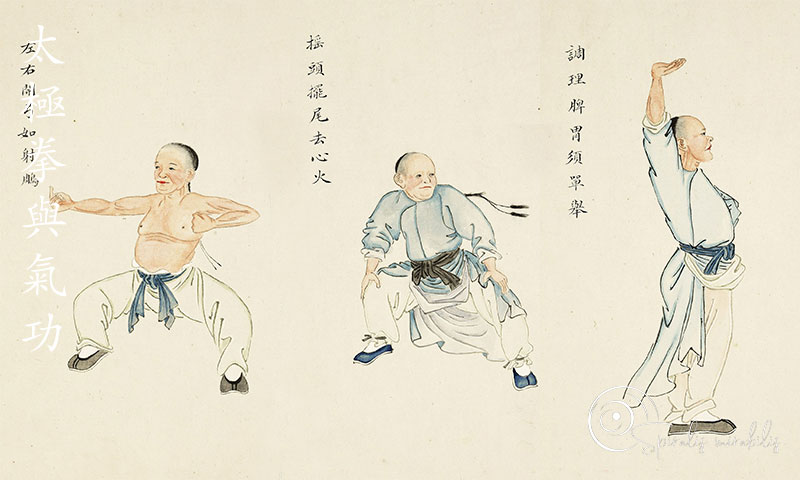 太極拳與氣功
左右開弓如射鵰
搖頭擺尾去心火
調理脾胃須單舉